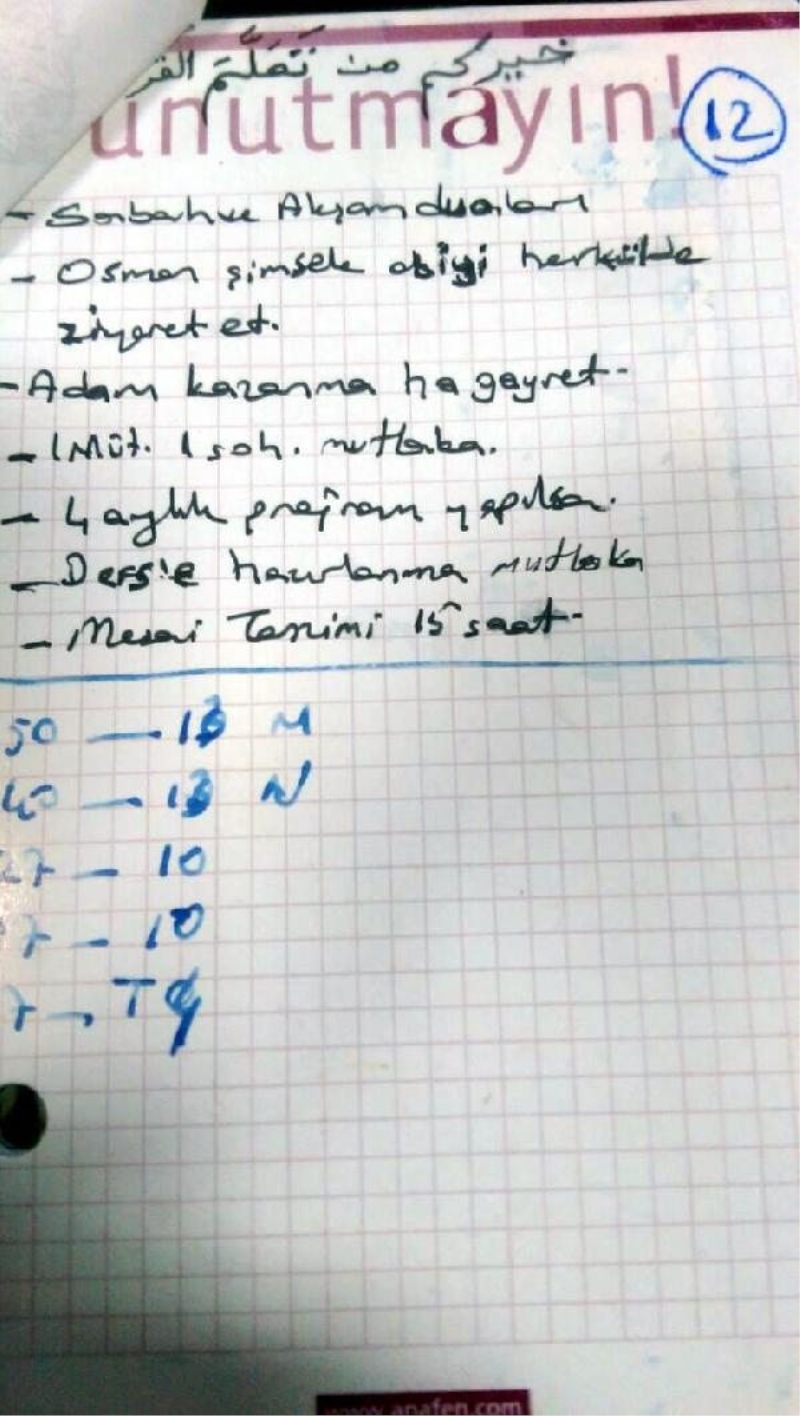 خيركم من تَعَلَّمَ القر
unutmayın!
12
- Sabah ve Akşam duaları
- Osman şimsek abiyi herkülde
ziyaret et.
- Adam kazanma ha gayret-
- 1 Müt. 1 soh. mutlaka.
- 4 aylık program yapılsa.
- Ders'e hazırlanma mutlaka
- Mesai Tanimi 15 saat-
50 — 13 M
40 — 13 N
27 — 10
7 - 10
7 -
www.anafen.com